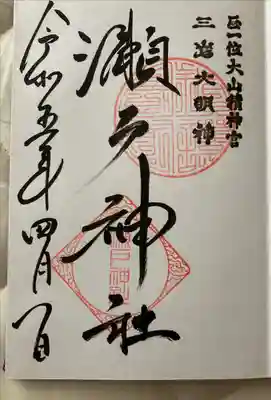 正一位大山積神宮
三島大明神
瀬戸神社
令和五年四月一日